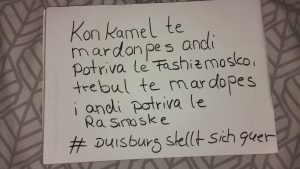 Kon kamel te
mardonpes andi
Potriva le Fashizmosko,
trebul te mardopes
i andi potriva le
Rasinoske
# Duisburg stellt sich quer